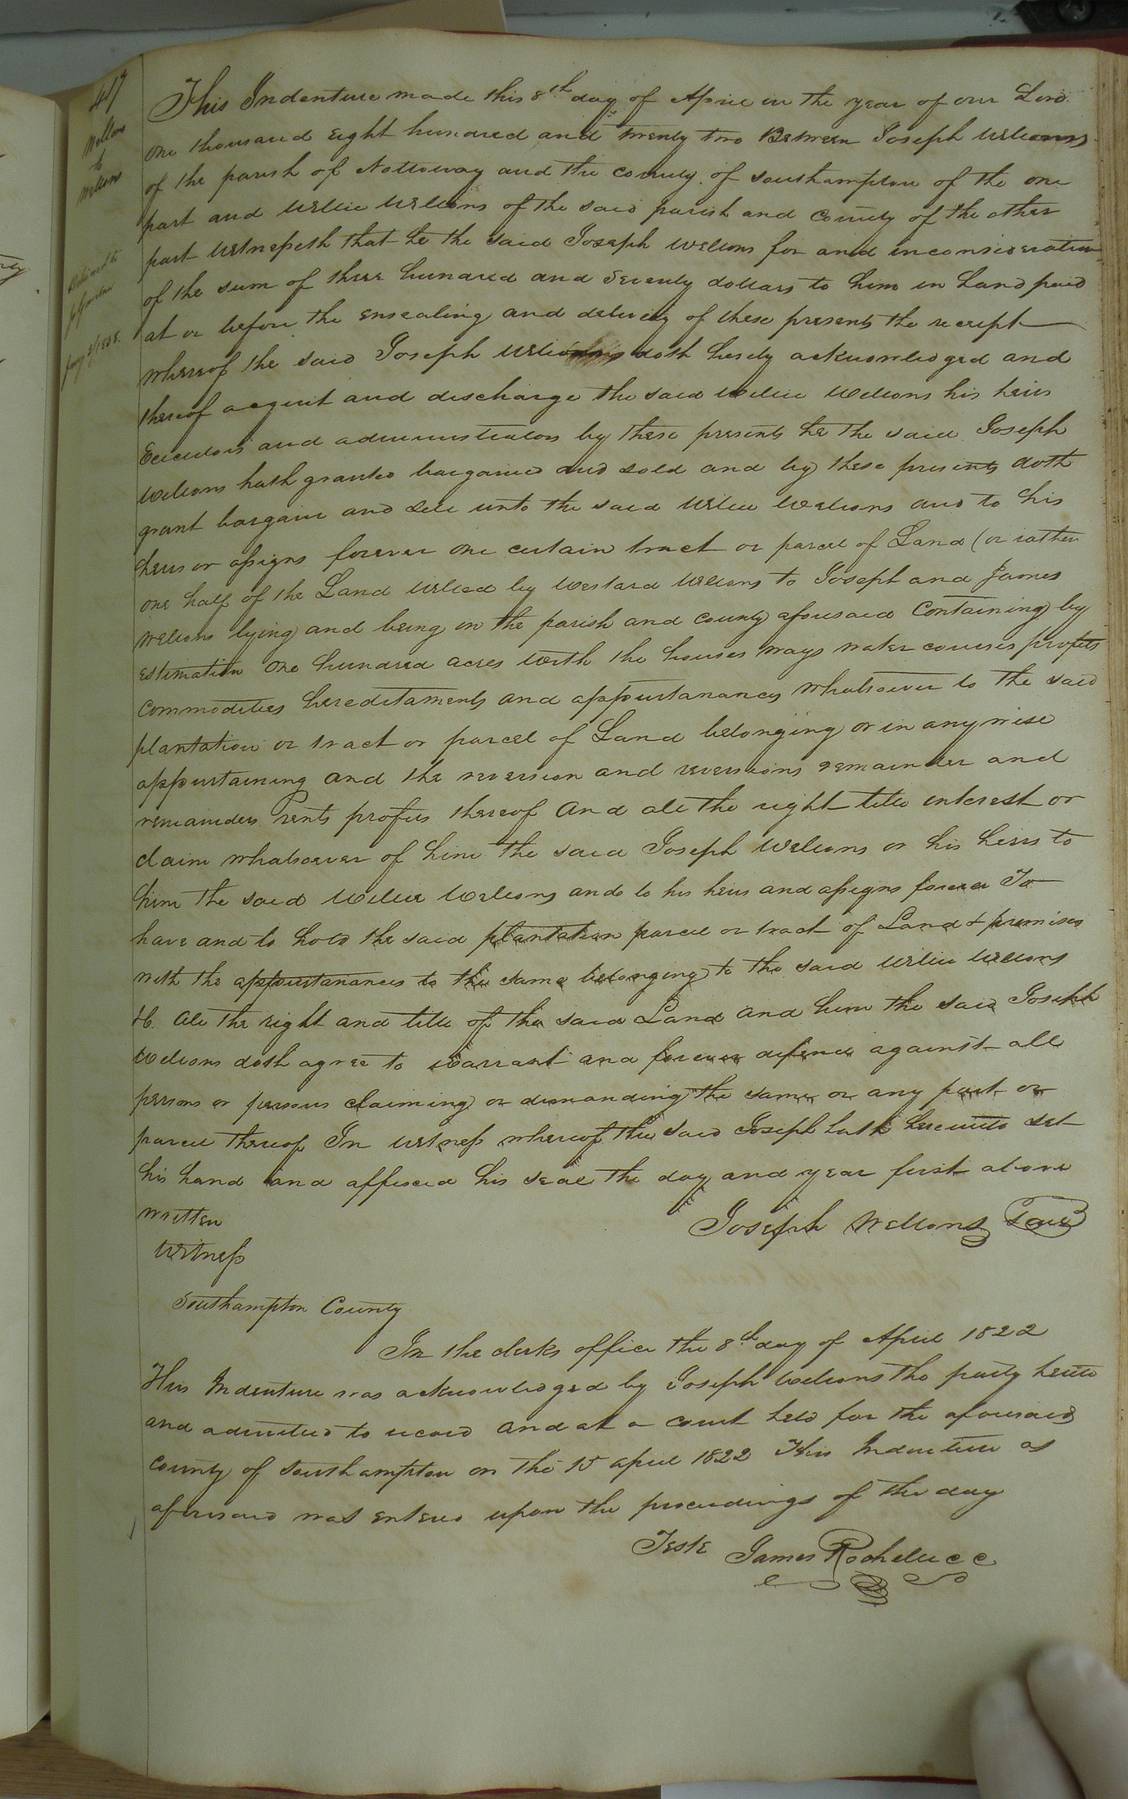 417
Wellons
to
Wellons
Delivered to
Jany 2/1828.
This Indenture made this 8th day of April in the year of our Lord
one thousand eight hundred and twenty two Between Joseph Wellons
of the parish of Nottoway and the county of Southampton of the one
part and Willie Wellons of the said parish and County of the other
part Witnesseth that he the said Joseph Wellons for and inconsideration
of the sum of three hundred and Seventy dollars to him in hand paid
at or before the ensealing and delivery of these presents the receipt
whereof the said Joseph Wellons doth hereby acknowledged and
thereof acquit and discharge the said Willie Wellons his heirs
Executors and administrators by these presents he the said Joseph
Wellons hath granted bargained and sold and by these presents doth
grant bargain and sell unto the said Willie Wellons and to his
heirs or assigns forever one certain tract or parcel of Land (or rather
one half of the Land Willed by Westard Wellons to Joseph and James
Wellons lying and being in the parish and county aforesaid Containing by
estimation one hundred acres with the houses ways water courses profits
commodities hereditaments and appurtanances whatsoever to the said
plantation or tract or parcel of Land belonging or in any wise
appurtaining and the reversion and reversions remainder and
remainders rents profits thereof and all the right title interest or
claim whatsoever of him the said Joseph Wellons or his heirs to
him the said Willie Wellons and to his heirs and assigns forever To
have and to hold the said plantation parcel or tract of Land & premises
with the appurtanances to the same belonging to the said Willie Wellons
&c. all the right and title of the said Land and him the said Joseph
Wellons doth agree to warrant and forever defend against all
persons or persons claiming or demanding the same or any part or
parcel thereof In witness whereof the said Joseph hath hereunto set
his hand and affixed his seal the day and year first above
written
Joseph Wellons Seal
Witness
Southampton County
In the clerks office the 8th day of April 1822
This Indenture was acknowledged by Joseph Wellons the party hereto
and admitted to record and at a court held for the aforesaid
county of Southampton on the 15 april 1822 This Indenture as
aforesaid was entered upon the proceedings of the day
Teste James Rochelle C C